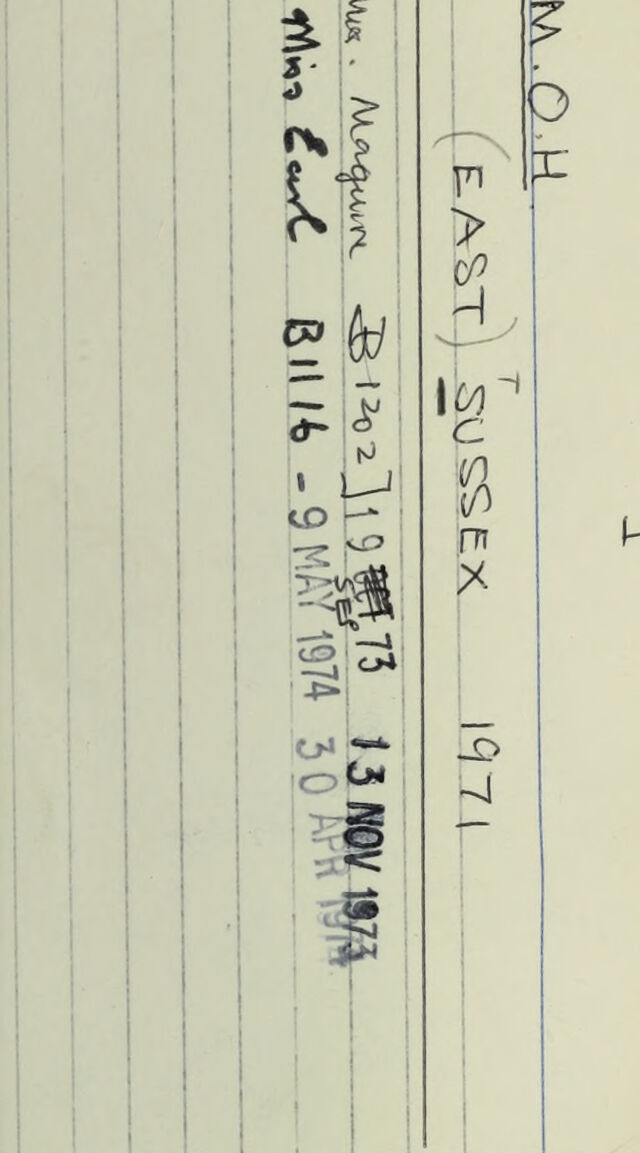 M.O.H
(EAST) SUSSEX 1971
Maguire B1202] 19 SEP 73 13 NOV 1973
Miss Earl B1116 - 9 MAY 1974 30 APR 1974